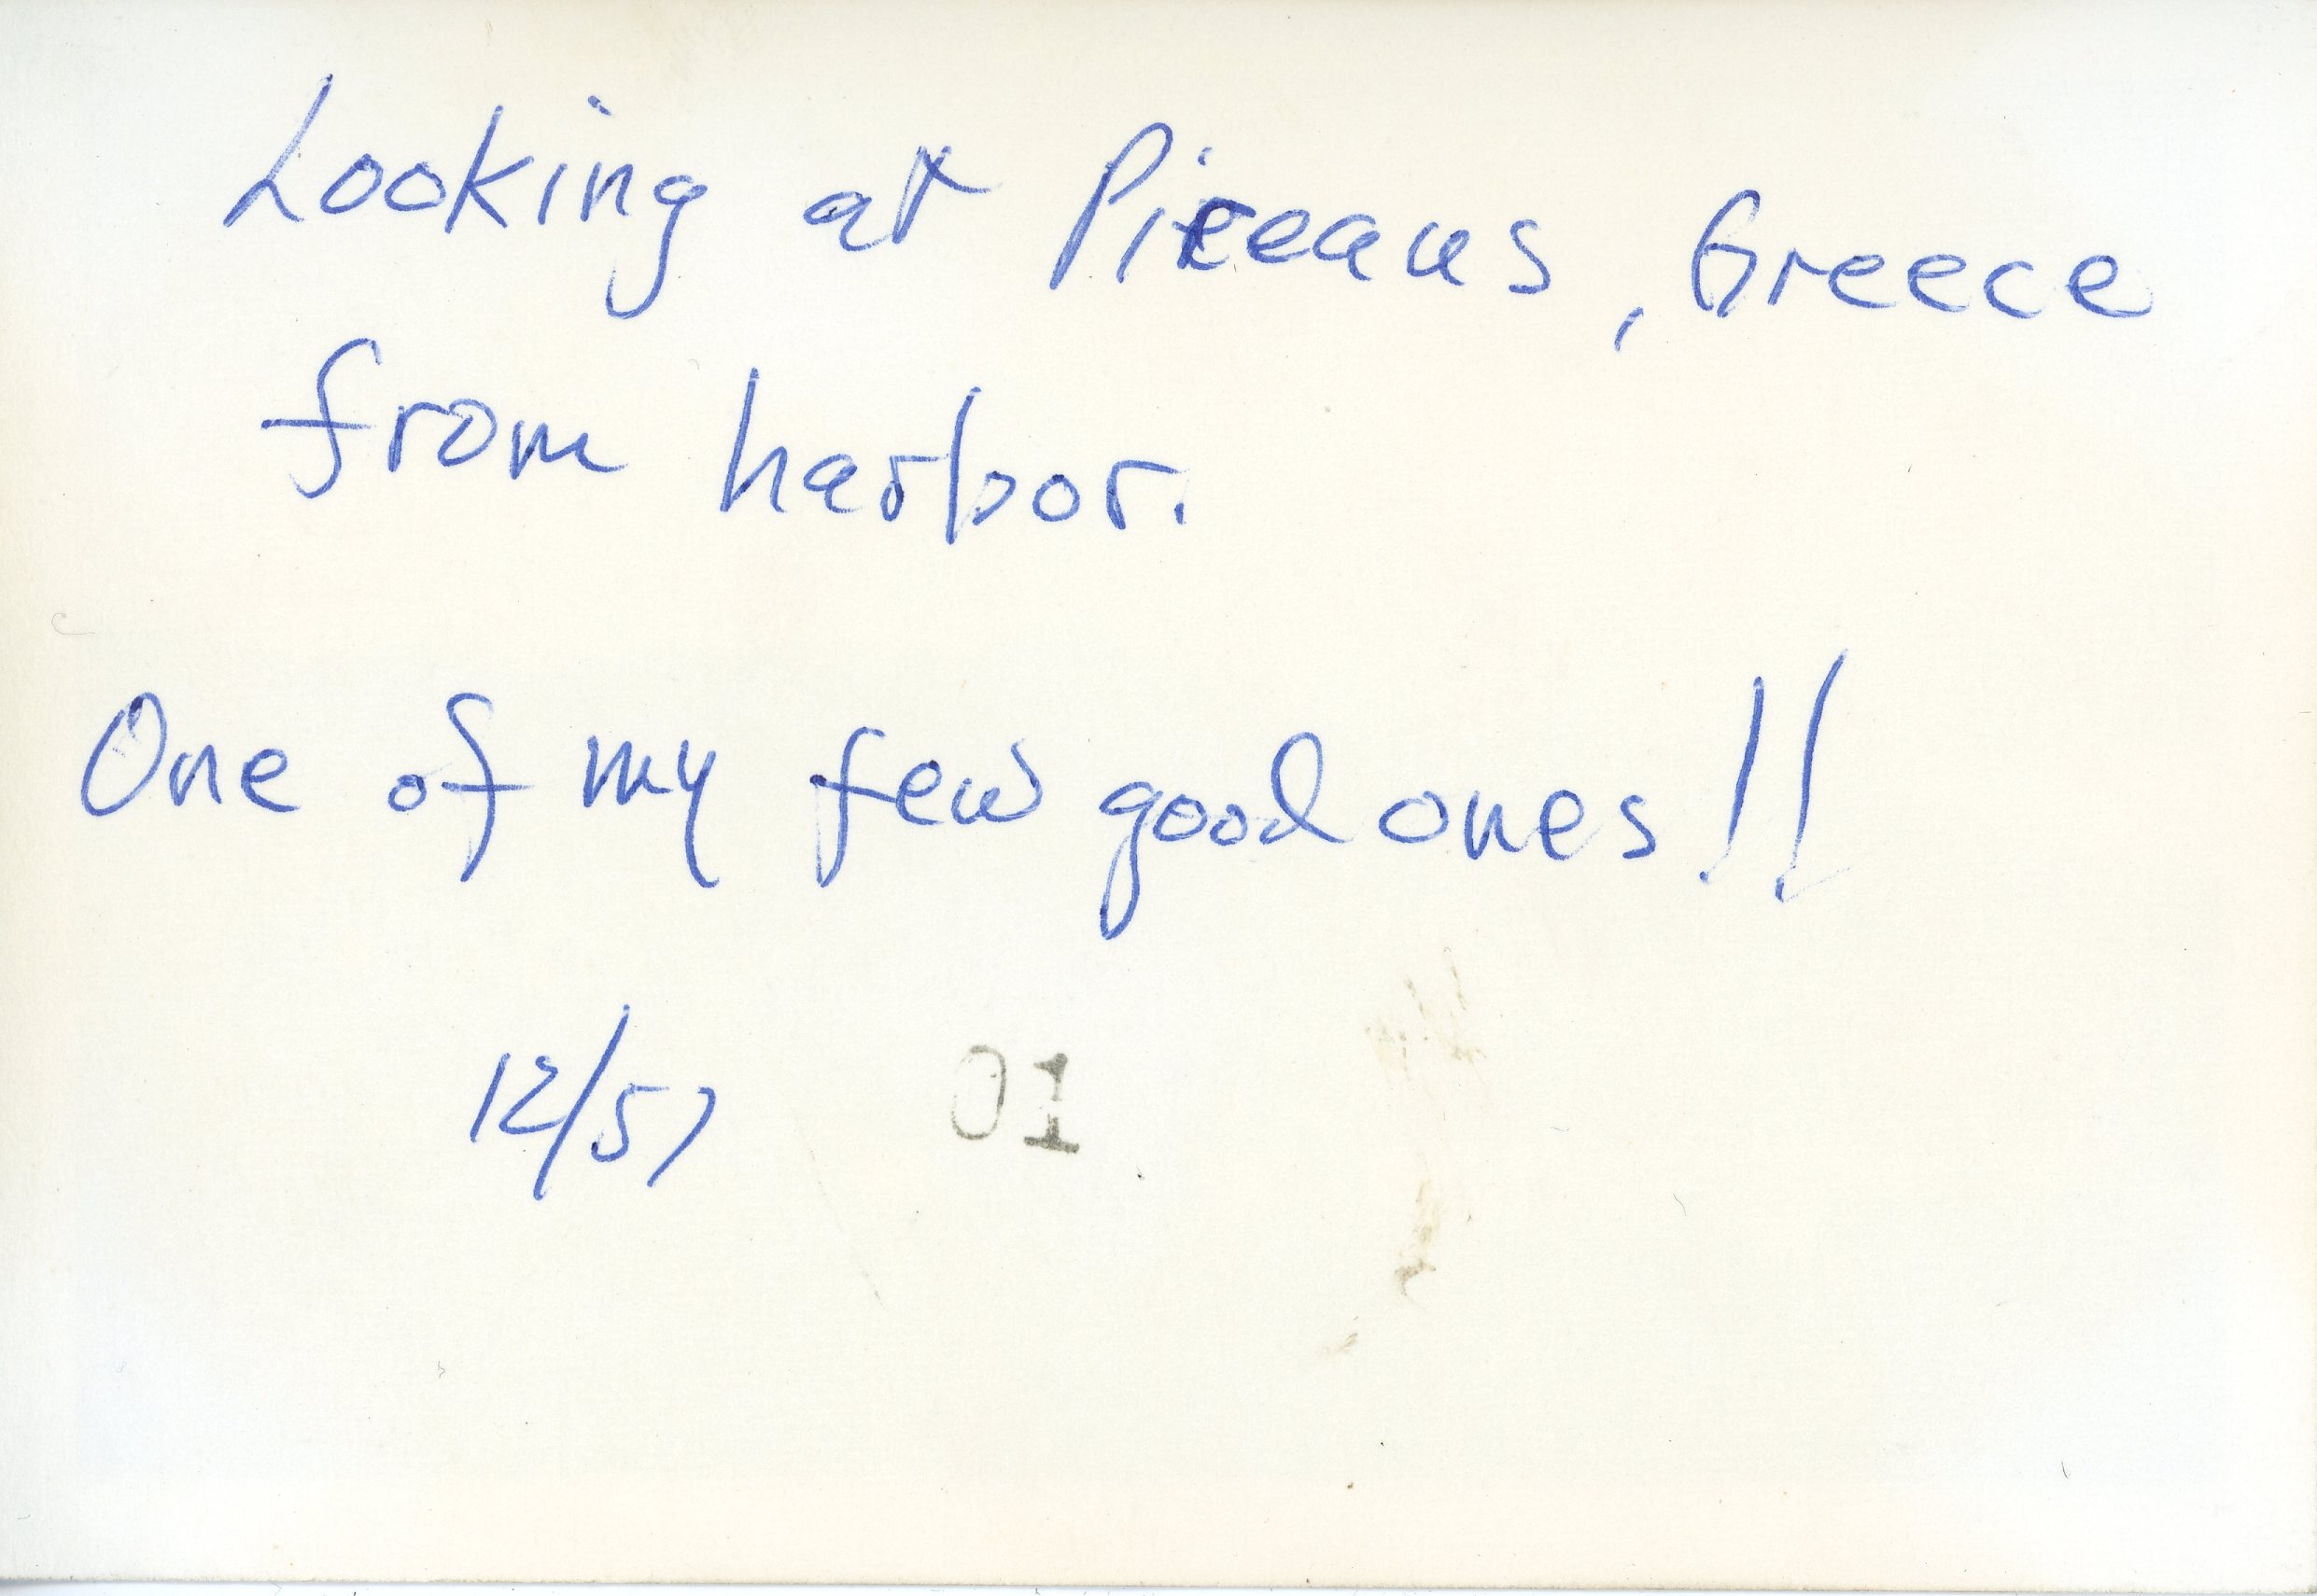 Looking at Pireaus, Greece
from harbor.
One of my few good ones!!
12/57 01